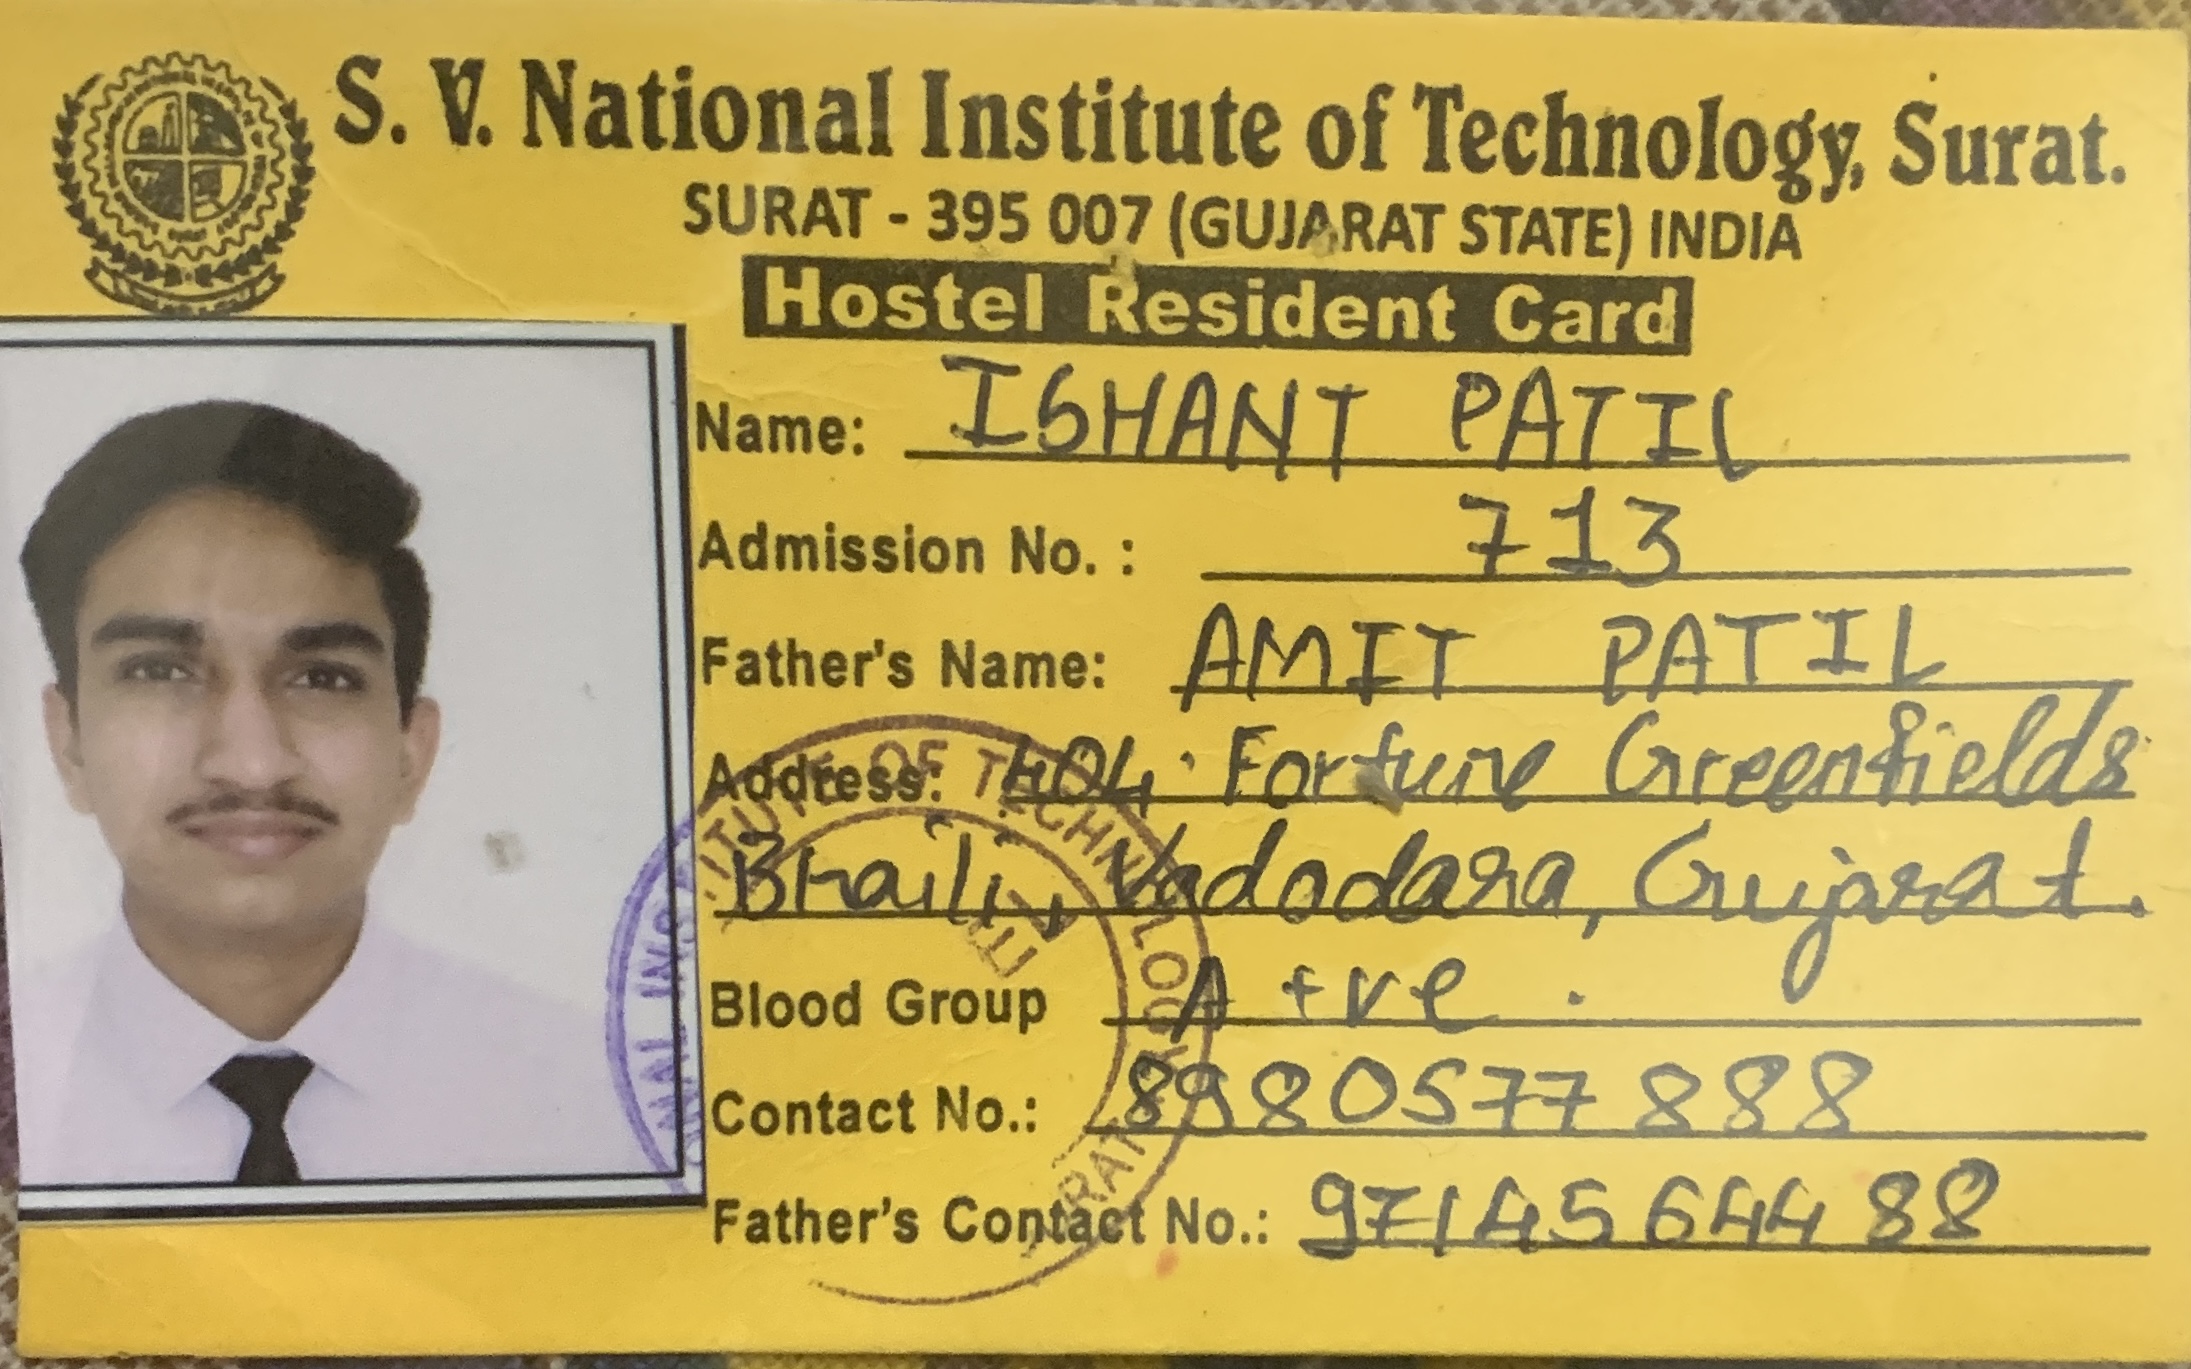 S. V. National Institute of Technology, Surat.
SURAT - 395 007 (GUJARAT STATE) INDIA
Hostel Resident Card
Name: ISHANT PATIL
Admission No. : 713
Father's Name: AMIT PATIL
Address: 404. Fortune Greenfields
Bhaili, Vadodara, Gujarat.
Blood Group A +ve .
Contact No.: 8980577888
Father's Contact No.: 9714564488